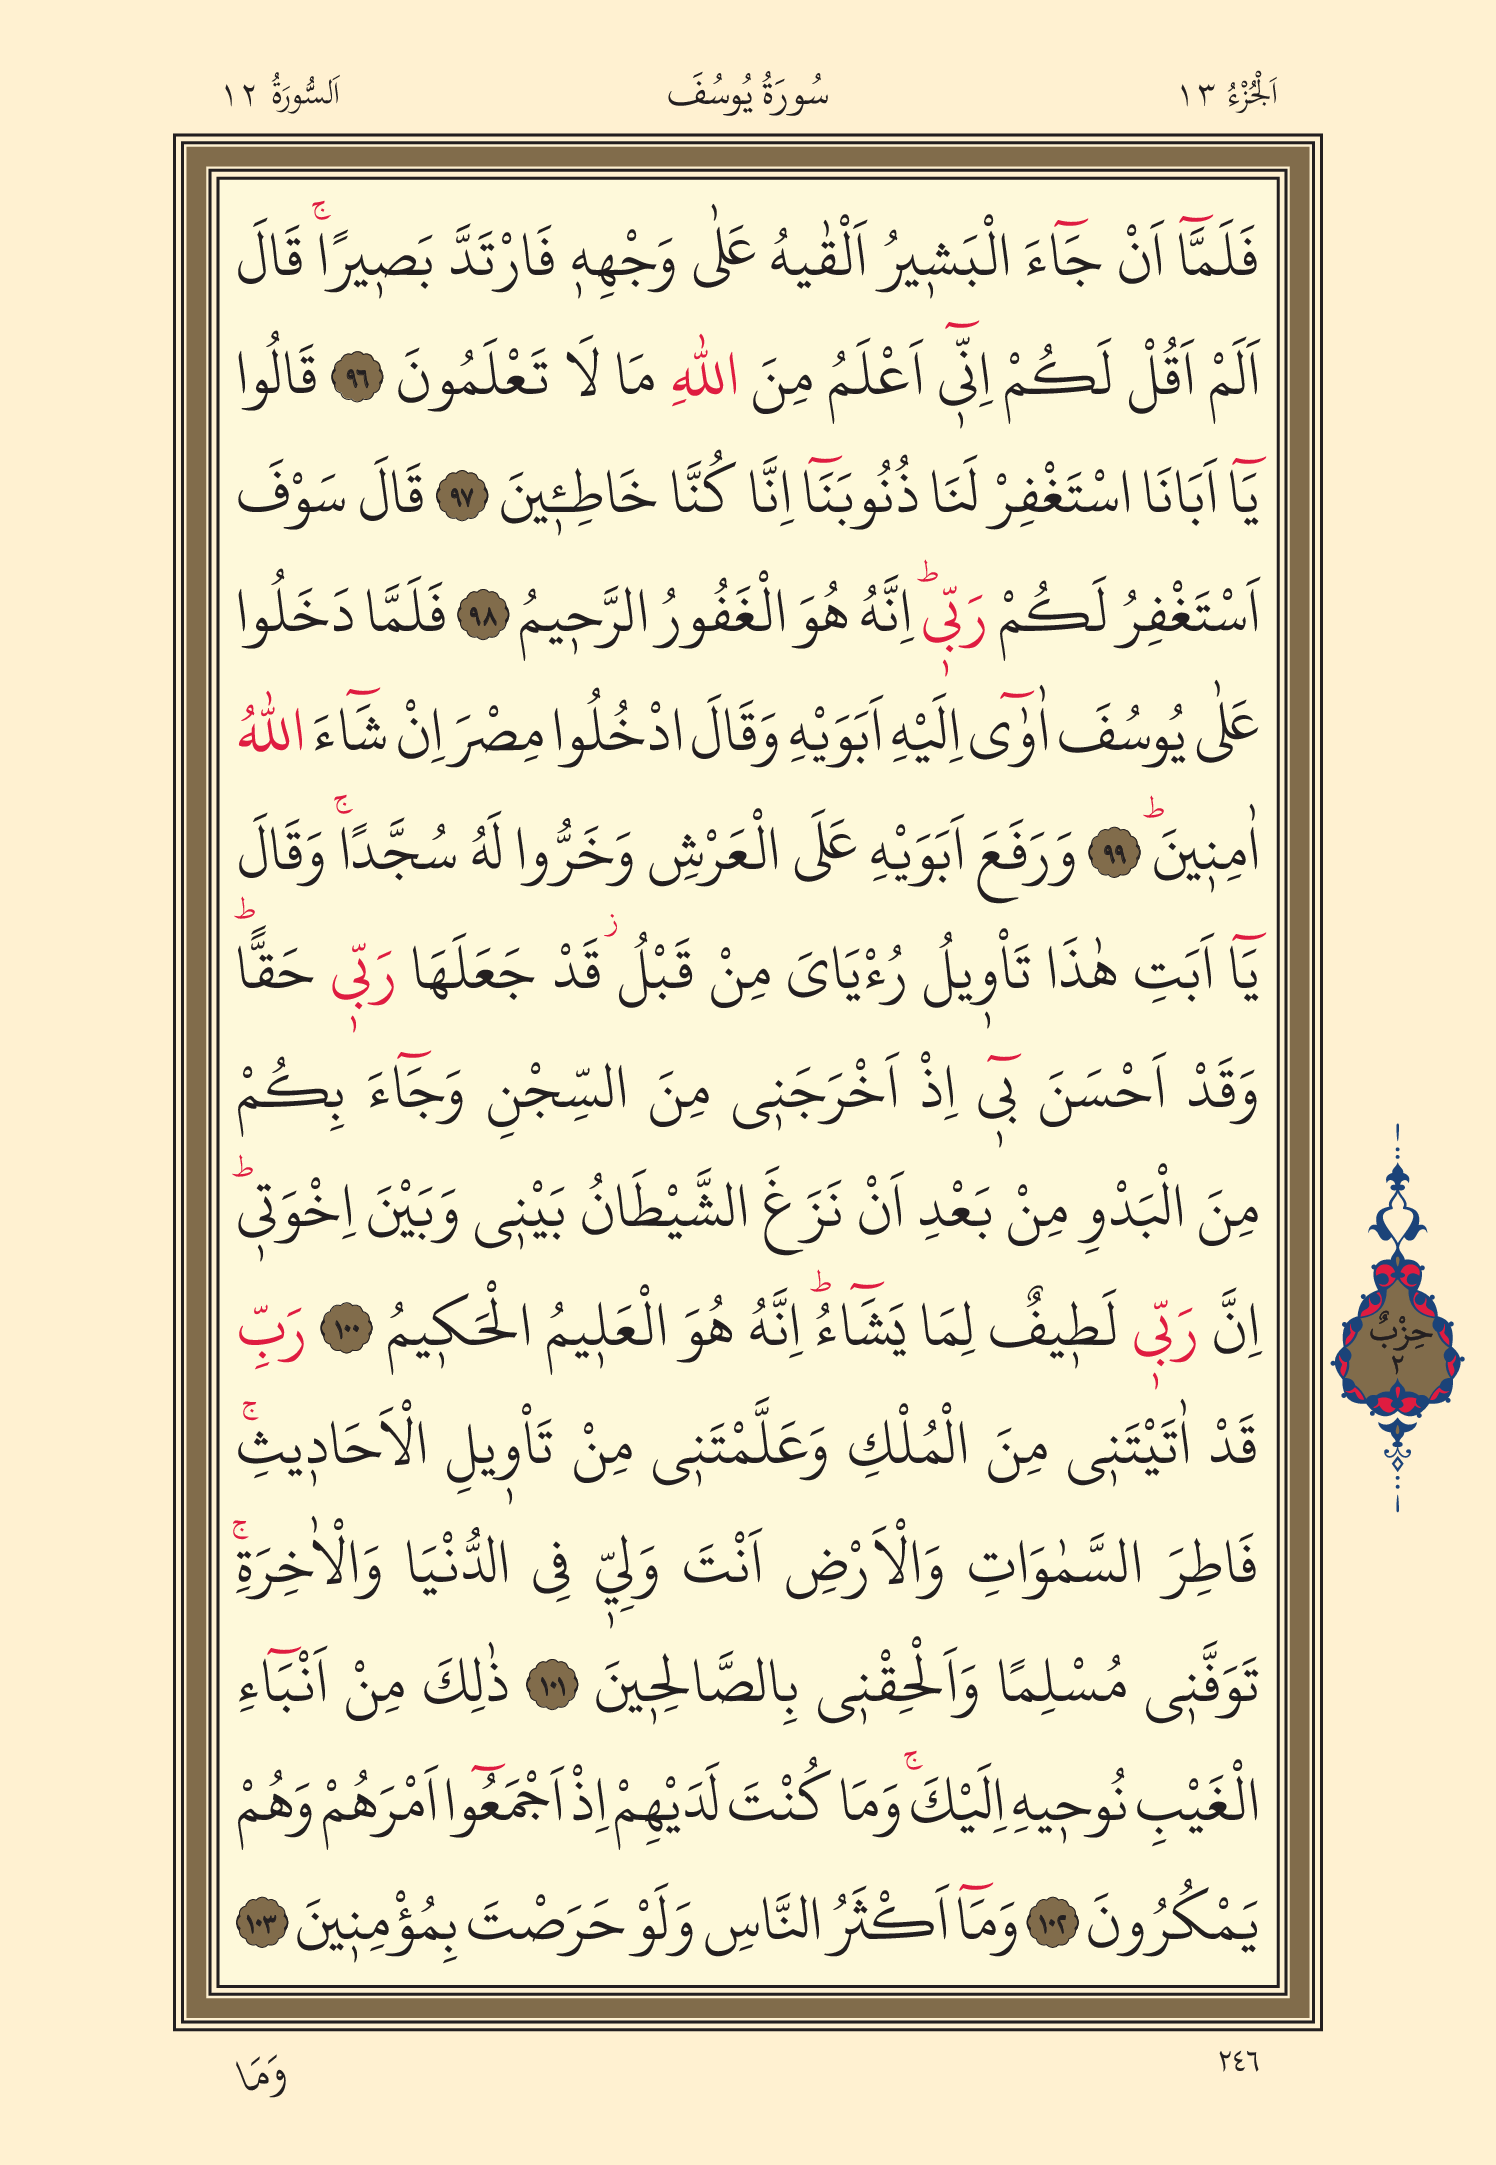 اَلْجُزْءُ ١٣ سُورَةُ يُوسُفَ اَلسُّورَةُ ١٢
فَلَمَّٓا اَنْ جَٓاءَ الْبَشٖيرُ اَلْقٰيهُ عَلٰى وَجْهِهٖ فَارْتَدَّ بَصٖيرًاۚ قَالَ
اَلَمْ اَقُلْ لَكُمْ اِنّٖٓى اَعْلَمُ مِنَ اللّٰهِ مَا لَا تَعْلَمُونَ ٩٦ قَالُوا
يَٓا اَبَانَا اسْتَغْفِرْ لَنَا ذُنُوبَنَٓا اِنَّا كُنَّا خَاطِـٖٔينَ ٩٧ قَالَ سَوْفَ
اَسْتَغْفِرُ لَكُمْ رَبّٖىؕ اِنَّهُ هُوَ الْغَفُورُ الرَّحٖيمُ ٩٨ فَلَمَّا دَخَلُوا
عَلٰى يُوسُفَ اٰوٰٓى اِلَيْهِ اَبَوَيْهِ وَقَالَ ادْخُلُوا مِصْرَ اِنْ شَٓاءَ اللّٰهُ
اٰمِنٖينَؕ ٩٩ وَرَفَعَ اَبَوَيْهِ عَلَى الْعَرْشِ وَخَرُّوا لَهُ سُجَّدًاۚ وَقَالَ
يَٓا اَبَتِ هٰذَا تَاْوٖيلُ رُءْيَاىَ مِنْ قَبْلُؗ قَدْ جَعَلَهَا رَبّٖى حَقًّاؕ
وَقَدْ اَحْسَنَ بٖٓى اِذْ اَخْرَجَنٖى مِنَ السِّجْنِ وَجَٓاءَ بِكُمْ
مِنَ الْبَدْوِ مِنْ بَعْدِ اَنْ نَزَغَ الشَّيْطَانُ بَيْنٖى وَبَيْنَ اِخْوَتٖىؕ
اِنَّ رَبّٖى لَطٖيفٌ لِمَا يَشَٓاءُؕ اِنَّهُ هُوَ الْعَلٖيمُ الْحَكٖيمُ ١٠٠ رَبِّ
قَدْ اٰتَيْتَنٖى مِنَ الْمُلْكِ وَعَلَّمْتَنٖى مِنْ تَاْوٖيلِ الْاَحَادٖيثِۚ
فَاطِرَ السَّمٰوَاتِ وَالْاَرْضِ اَنْتَ وَلِيّٖ فِى الدُّنْيَا وَالْاٰخِرَةِۚ
تَوَفَّنٖى مُسْلِمًا وَاَلْحِقْنٖى بِالصَّالِحٖينَ ١٠١ ذٰلِكَ مِنْ اَنْبَٓاءِ
الْغَيْبِ نُوحٖيهِ اِلَيْكَۚ وَمَا كُنْتَ لَدَيْهِمْ اِذْ اَجْمَعُٓوا اَمْرَهُمْ وَهُمْ
يَمْكُرُونَ ١٠٢ وَمَٓا اَكْثَرُ النَّاسِ وَلَوْ حَرَصْتَ بِمُؤْمِنٖينَ ١٠٣
حِزْبٌ
٢
٢٤٦ وَمَا